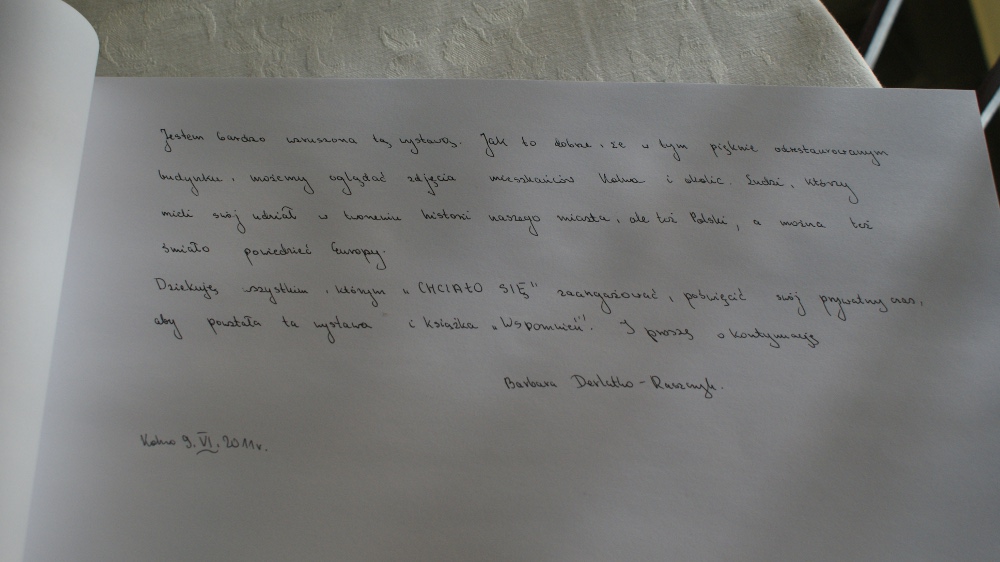 Jestem bardzo wzruszona tą wystawą. Jak to dobrze, że w tym pięknie odrestaurowanym
budynku, możemy oglądać zdjęcia mieszkańców Kolna i okolic. Ludzi, którzy
mieli swój udział w tworzeniu historii naszego miasta, ale też Polski, a można też
śmiało powiedzieć Europy.
Dziękuję wszystkim, którym „CHCIAŁO SIĘ" zaangażować, poświęcić swój prywatny czas,
aby powstała ta wystawa i książka „Wspomnień". I proszę o kontynuację
Barbara
Kolno 9.VI.2011r.